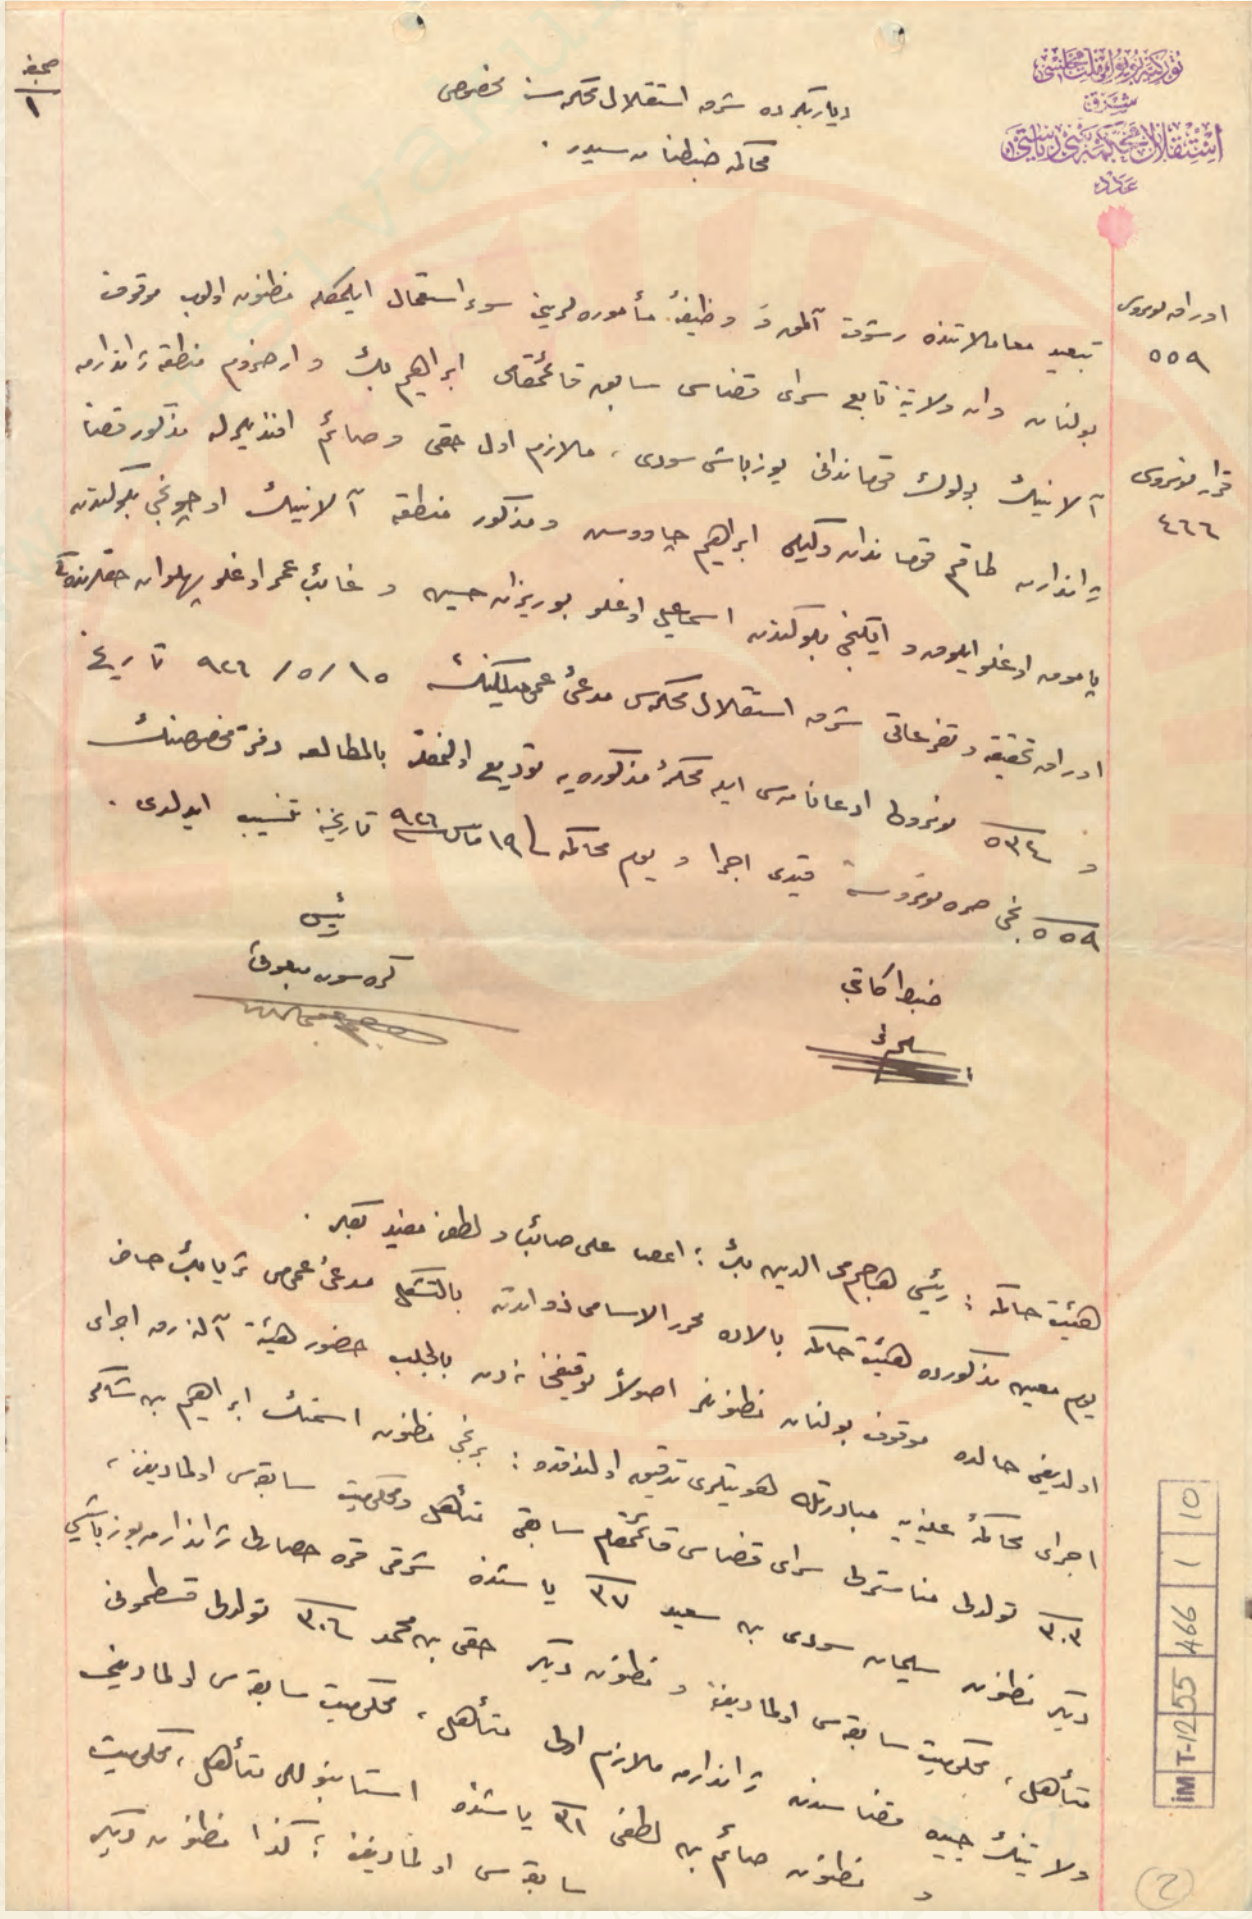 صحيفه
١
توركيه بويوك ملت مجلسى
شرق
استقلال محكمه سى رياستى
عدد
دياربكرده شرق استقلال محكمه سنه مخصوص
محاكمه ضبطنامه سيدر .
اوراق نومروسى
٥٥٩
قرار نومروسى
٤٦٦
تبعيد معاملاتنده رشوت آلمق و وظيفۀ مأموره لرينى سوء استعمال ايلمكله مظنون اولوب موقوف
بولنان وان ولايتنه تابع سراى قضاسى سابق قائمقامى ابراهيم بك و ارضروم منطقه ژاندارمه
آلاينك بلوك قوماندانى يوزباشى سودى ، ملازم اول حقى و صائم افنديلرله مذكور قضا
ژاندارمه طاقم قوماندان وكيلى ابراهيم چاووس و مذكور منطقه آلاينك اوچونجى بلوكندن
اوغلو و ايكنجى بلوكندن اسماعيل اوغلو حسين و غائب عمر اوغلو پهلوان حقلرنده كى
اوراق تحقيقيه و تفرعاتى شرق استقلال محكمه سى مدعئ عموميليكنك ١٥ /٥ /٩٢٦ تاريخ
و ٥٣٤ نومرولى ادعانامه سى ايله محكمۀ مذكوره يه توديع اولنمقله بالمطالعه دفتر مخصوصنك
٥٥٩ نجى صره نومروسنه قيدى اجرا و يوم محاكمه ١٩ مايس ٩٢٦ تاريخنه تنسيب ايدلدى .
رئيس
كره سون مبعوثى
ضبط كاتبى
هيئت حاكمه : رئيس هاجم محى الدين بك ؛ اعضا على صائب و لطفى مفيد بكلر .
يوم معين مذكورده هيئت حاكمه بالاده محرر الاسامى ذواتدن بالتشكل مدعئ عمومى ثريا بك حاضر
اولديغى حالده موقوف بولنان مظنونلر اصولاً توقيفخانه دن بالجلب حضور هيئته آلنه رق اجراى
اجراى محاكمۀ علنيه يه مبادرتله هويتلرى تدقيق اولندقده : برنجى مظنون اسمنك ابراهيم بن شاكر
٣٠٣ تولدلى مناسترلى سراى قضاسى قائمقام سابقى متأهل و محكوميت سابقه سى اولماديغنى ،
ديكر مظنون سليمان سودى بن سعيد ٣٧ ياشنده شرقى قره حصارلى ژاندارمه يوزباشيسى
متأهل ، محكوميت سابقه سى اولماديغنى و مظنون ديكر حقى بن محمد ٣٠٦ تولدلى قسطمونى
ولايتنك جيده قضاسندن ژاندارمه ملازم اولى متأهل ، محكوميت سابقه سى اولماديغنى
و مظنون صائم بن لطفى ٣١ ياشنده استانبوللى متأهل ، محكوميت
سابقه سى اولماديغنى ؛ كذا مظنون ديكر
İM T-12 55 466 1 10
2